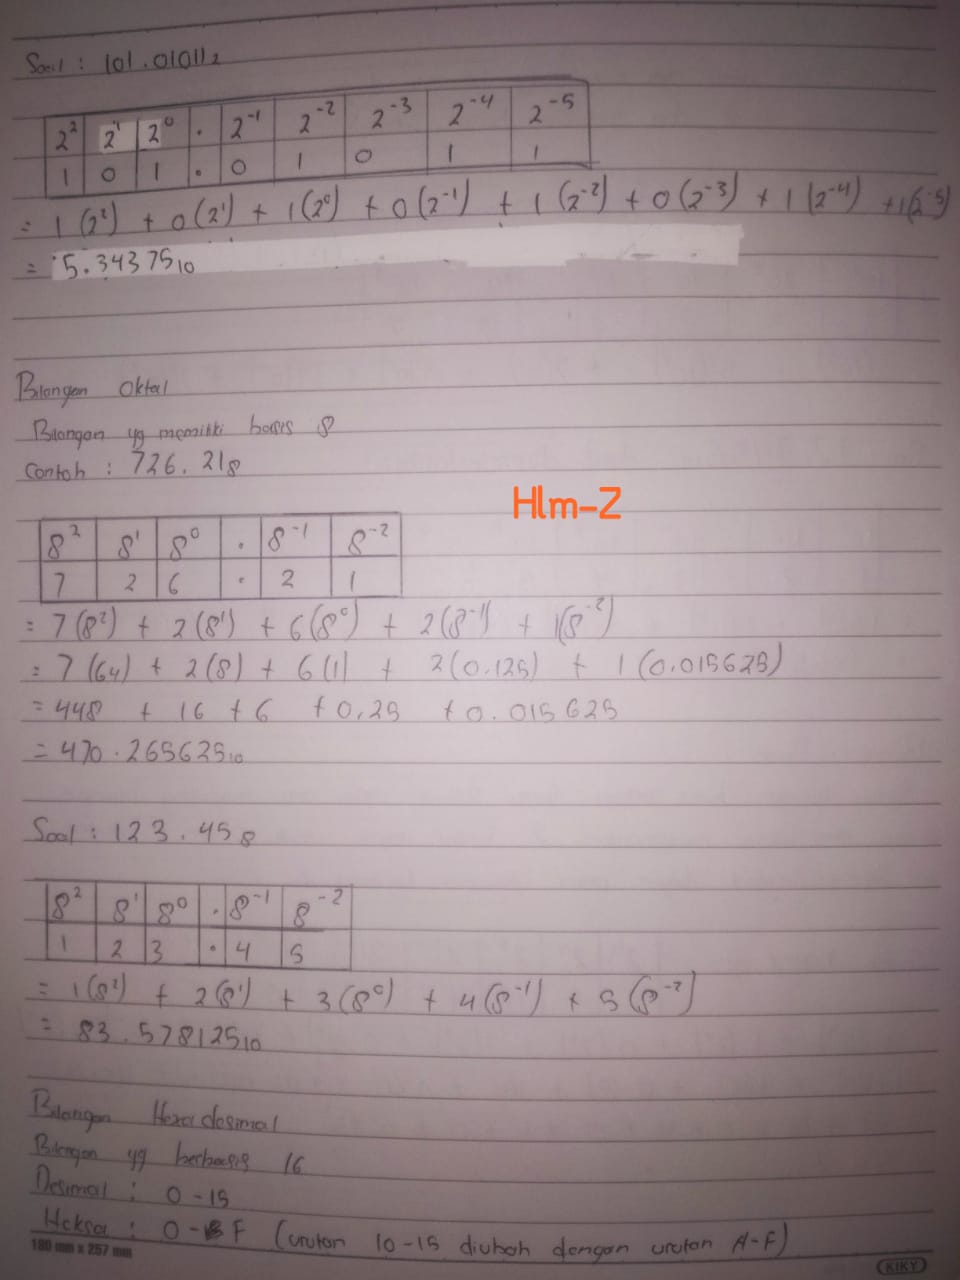 Soal : 101.01011₂
2² 2¹ 2⁰ . 2⁻¹ 2⁻² 2⁻³ 2⁻⁴ 2⁻⁵
1 0 1 . 0 1 0 1 1
= 1(2²) + 0(2¹) + 1(2⁰) + 0(2⁻¹) + 1(2⁻²) + 0(2⁻³) + 1(2⁻⁴) + 1(2⁻⁵)
= 5.34375₁₀
Bilangan Oktal
Bilangan yg memiliki basis 8
Contoh : 726.21₈
Hlm-2
8² 8¹ 8⁰ . 8⁻¹ 8⁻²
7 2 6 . 2 1
= 7(8²) + 2(8¹) + 6(8⁰) + 2(8⁻¹) + 1(8⁻²)
= 7(64) + 2(8) + 6(1) + 2(0.125) + 1(0.015625)
= 448 + 16 + 6 + 0,25 + 0.015625
= 470.265625₁₀
Soal : 123.45₈
8² 8¹ 8⁰ . 8⁻¹ 8⁻²
1 2 3 . 4 5
= 1(8²) + 2(8¹) + 3(8⁰) + 4(8⁻¹) + 5(8⁻²)
= 83.578125₁₀
Bilangan Hexadesimal
Bilangan yg berbasis 16
Desimal : 0-15
Heksa : 0-F (urutan 10-15 diubah dengan urutan A-F)
180 mm x 257 mm
KIKY